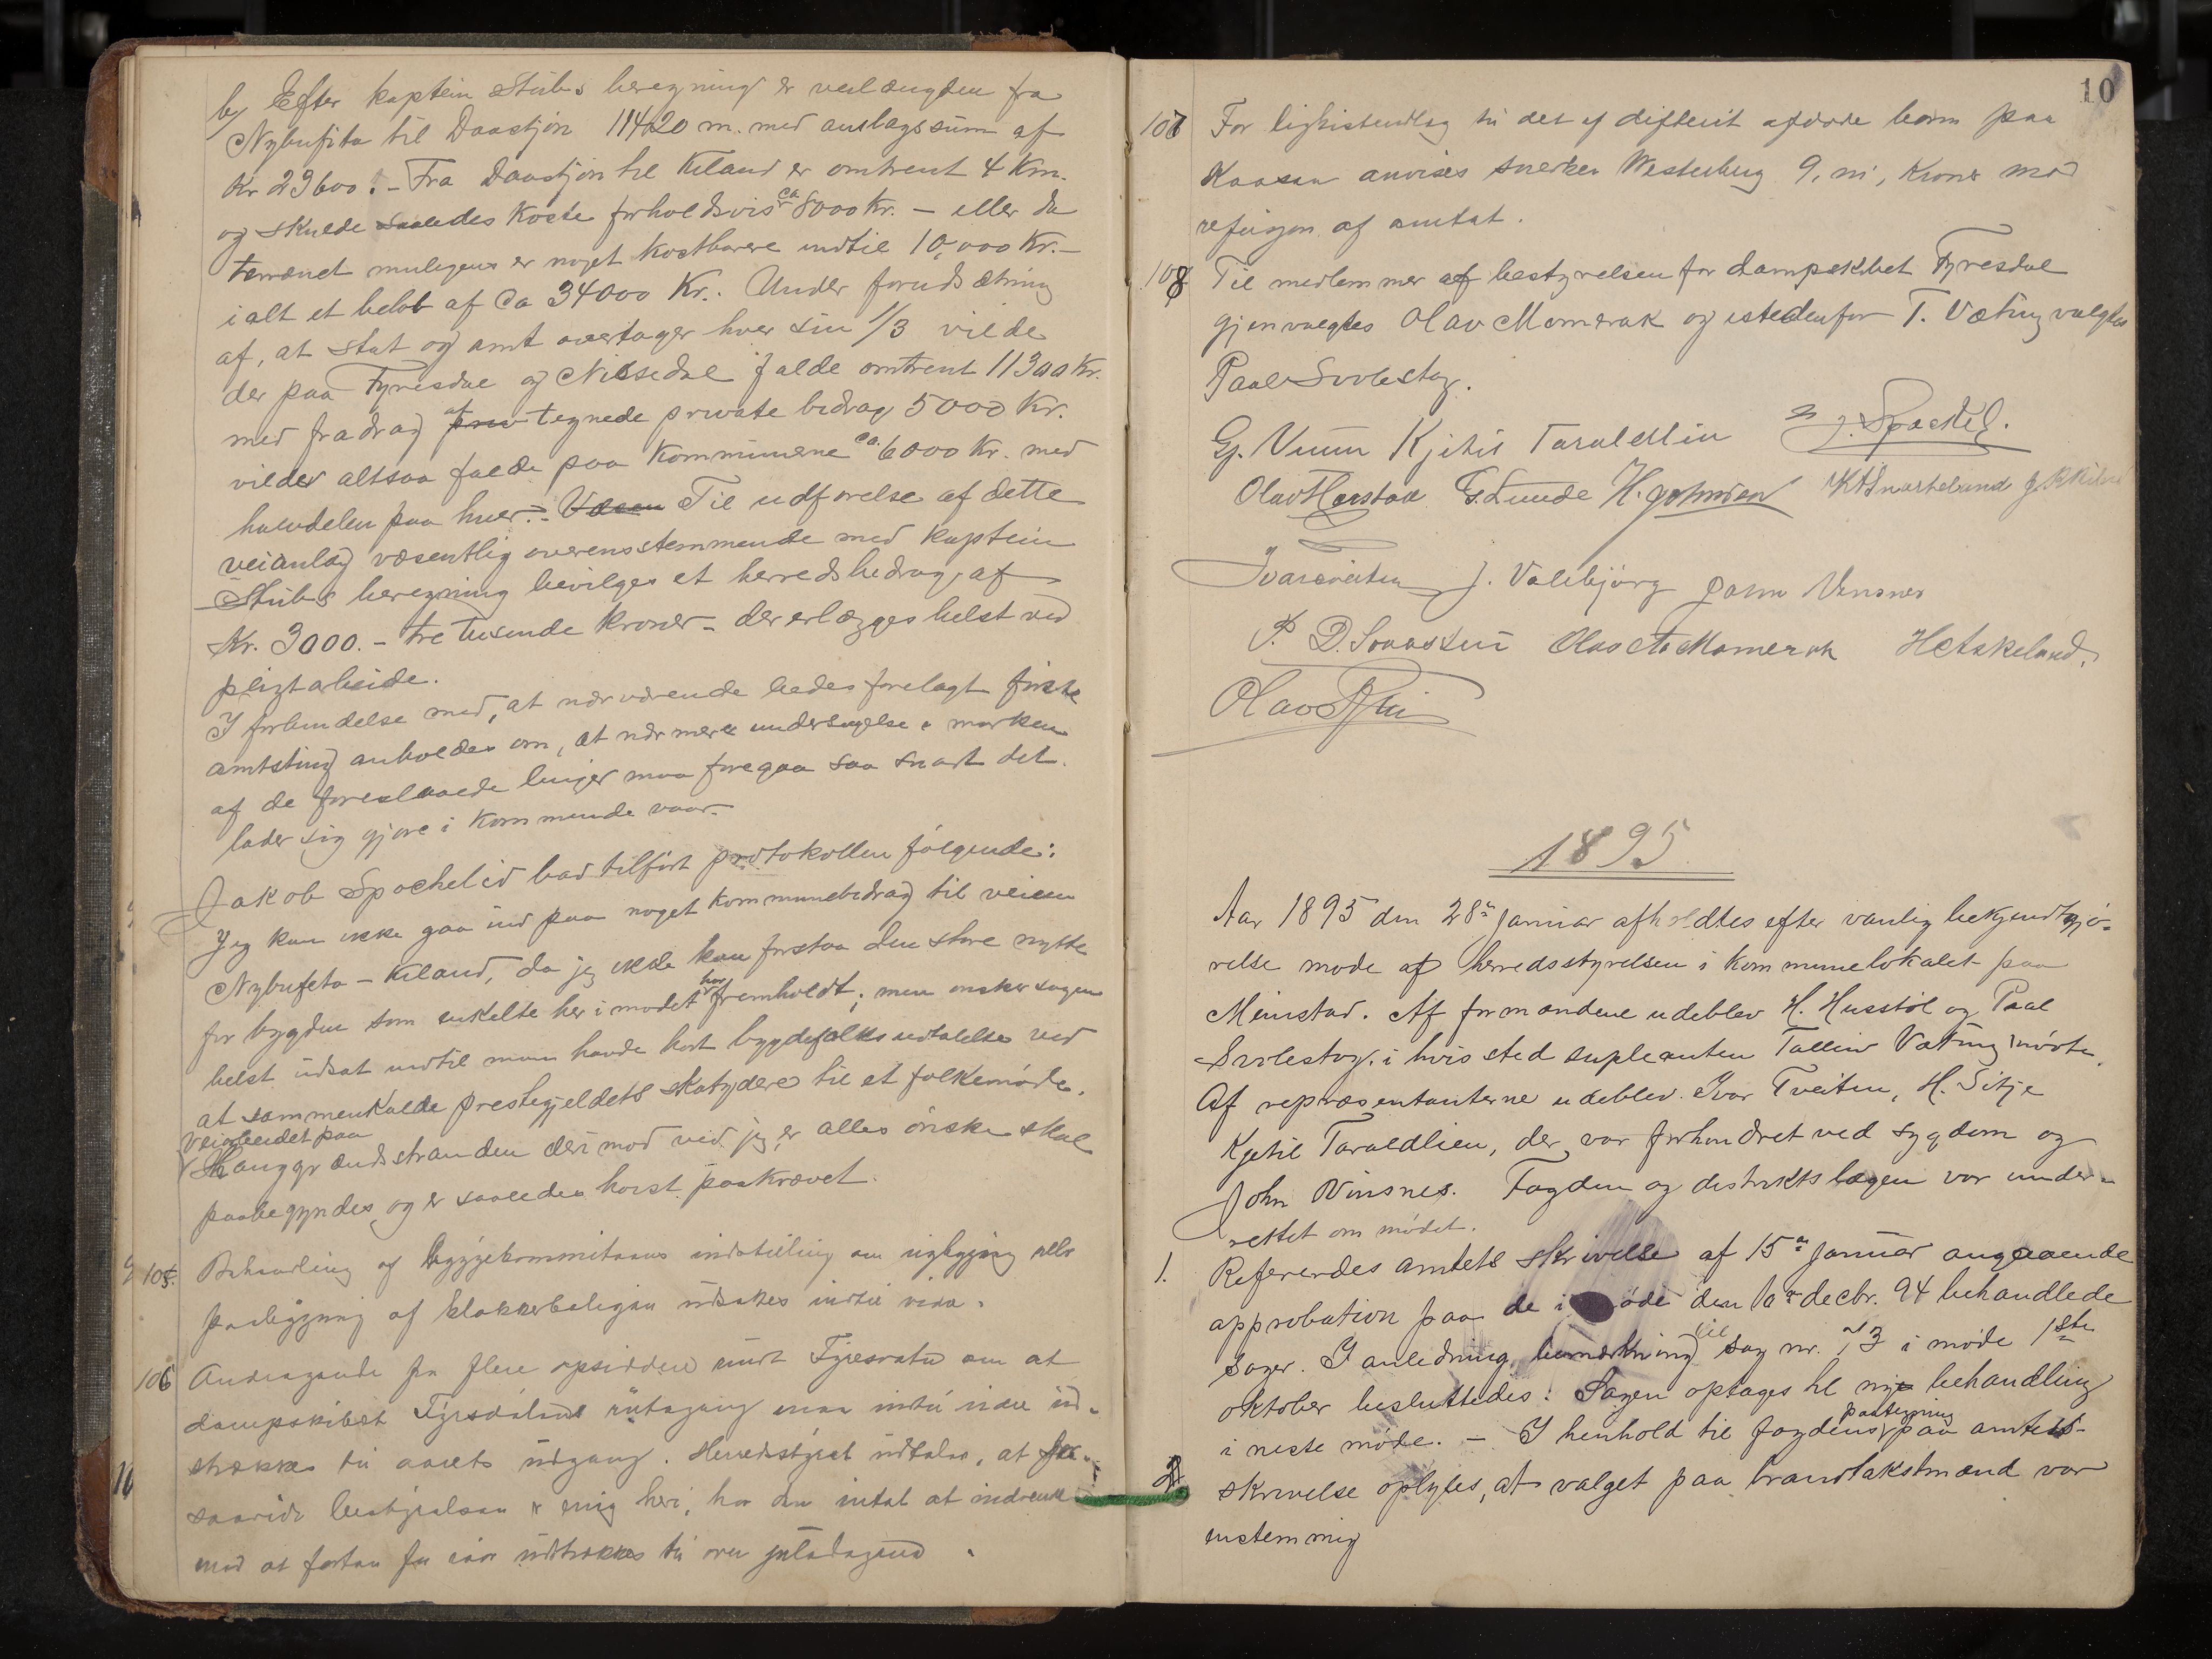 b/ Efter kaptein Stubs beregning er veilængden fra
Nybufita til Daastjøn 11420 m. med anslagssum af
Kr 23600. - Fra Daastjøn til Kiland er omtrent 4 Km.
og skulde saaledes koste forholdsvis ca 8000 Kr. - eller da
terrænet muligens er noget kostbarere indtil 10,000 Kr. -
ialt et beløb af Ca 34000 Kr. Under forudsætning
af, at stat og amt overtager hver sin 1/3 vilde
der paa Fyresdal og Nissedal falde omtrent 11300 Kr.
med fradrag af tegnede private bidrag 5000 Kr.
vilde altsaa falde paa kommunerne ca. 6000 Kr. med
halvdelen paa hver. - Til udførelse af dette
veianlæg væsentlig overensstemmende med kaptein
Stubs beregning bevilges et herredsbidrag af
Kr. 3000. - tre tusende kroner - der erlægges helst ved
pligtarbeide.
I forbindelse med, at nærværende bedes forelagt første
amtsting anholdes om, at nærmere undersøgelse i marken
af de foreslaaede linjer maa foregaa saa snart det
lader sig gjøre i kommende vaar.
Jakob Spockelid bad tilført protokollen følgende:
Jeg kan ikke gaa ind paa noget kommunebidrag til veien
Nybufeta - Kiland, da jeg ikke kan forstaa den store nytte
for bygden som enkelte her i mødet har fremholdt; men ønsker sagen
helst udsat indtil man havde hørt bygdefolks udtalelse ved
at sammenkalde prestegjeldets skatydere til et folkemøde.
Veiarbeidet paa
Hauggrændsstranden derimod ved jeg er alles ønske skal
paabegyndes og er saaledes høist paakrævet.
105. Behandling af byggekommiteens indstilling om nybygging eller
paabygging af klokkerboligen udsættes indtil videre.
106 Andragende fra flere opsiddere rundt Fyresvatn om at
dampskibet Fyresdølens rutegang maa indtil videre ud-
strækkes til aarets udgang. Herredsstyret udtaler, at for-
saavidt bestyrelsen er enig heri, har den intet at indvende
mod at farten for iaar udstrækkes til over juledagene.
10
107 For ligkisteudlæg til det af difterit afdøde barn paa
Kaasen anvises snerker Westerberg 9, ni, Kroner mod
refusjon af amtet.
108 Til medlemmer af bestyrelsen for dampskibet Fyresdøl
gjenvalgtes Olav Momrak og istedenfor T. Vøting valgtes
Paal Svolestøg.
G. Kjetil Taraldlien J. Spockel.
Olav Harstad G. Lunde H. Johnsen
Ivar Tveiten J. Valebjørg John Vinsnes
Olav Momrak H Askeland.
Olav
1895
Aar 1895 den 28de januar afholdtes efter vanlig bekjendtgjø-
relse møde af herredsstyrelsen i kommunelokalet paa
Meinstad. Af formændene udeblev H. Husstøl og Paal
Svolestøg, i hvis sted supleanten Talleiv Vøting møtte.
Af repræsentanterne udeblev Ivar Tveiten, H. Sitje
Kjetil Taraldlien, der var forhindret ved sygdom og
John Vinsnes. Fogden og distriktslægen var under-
rettet om mødet.
1. Refereredes amtets skrivelse af 15de januar angaaende
approbation paa de i øde den 10de decbr. 94 behandlede
sager. I anledning bemærkning til sag nr. 73 i møde 1ste
oktober besluttedes: Sagen optages til nye behandling
i neste møde. - I henhold til fogdens paategning paa amtets
2. skrivelse oplyses, at valget paa brandtakstmænd var
enstemmig